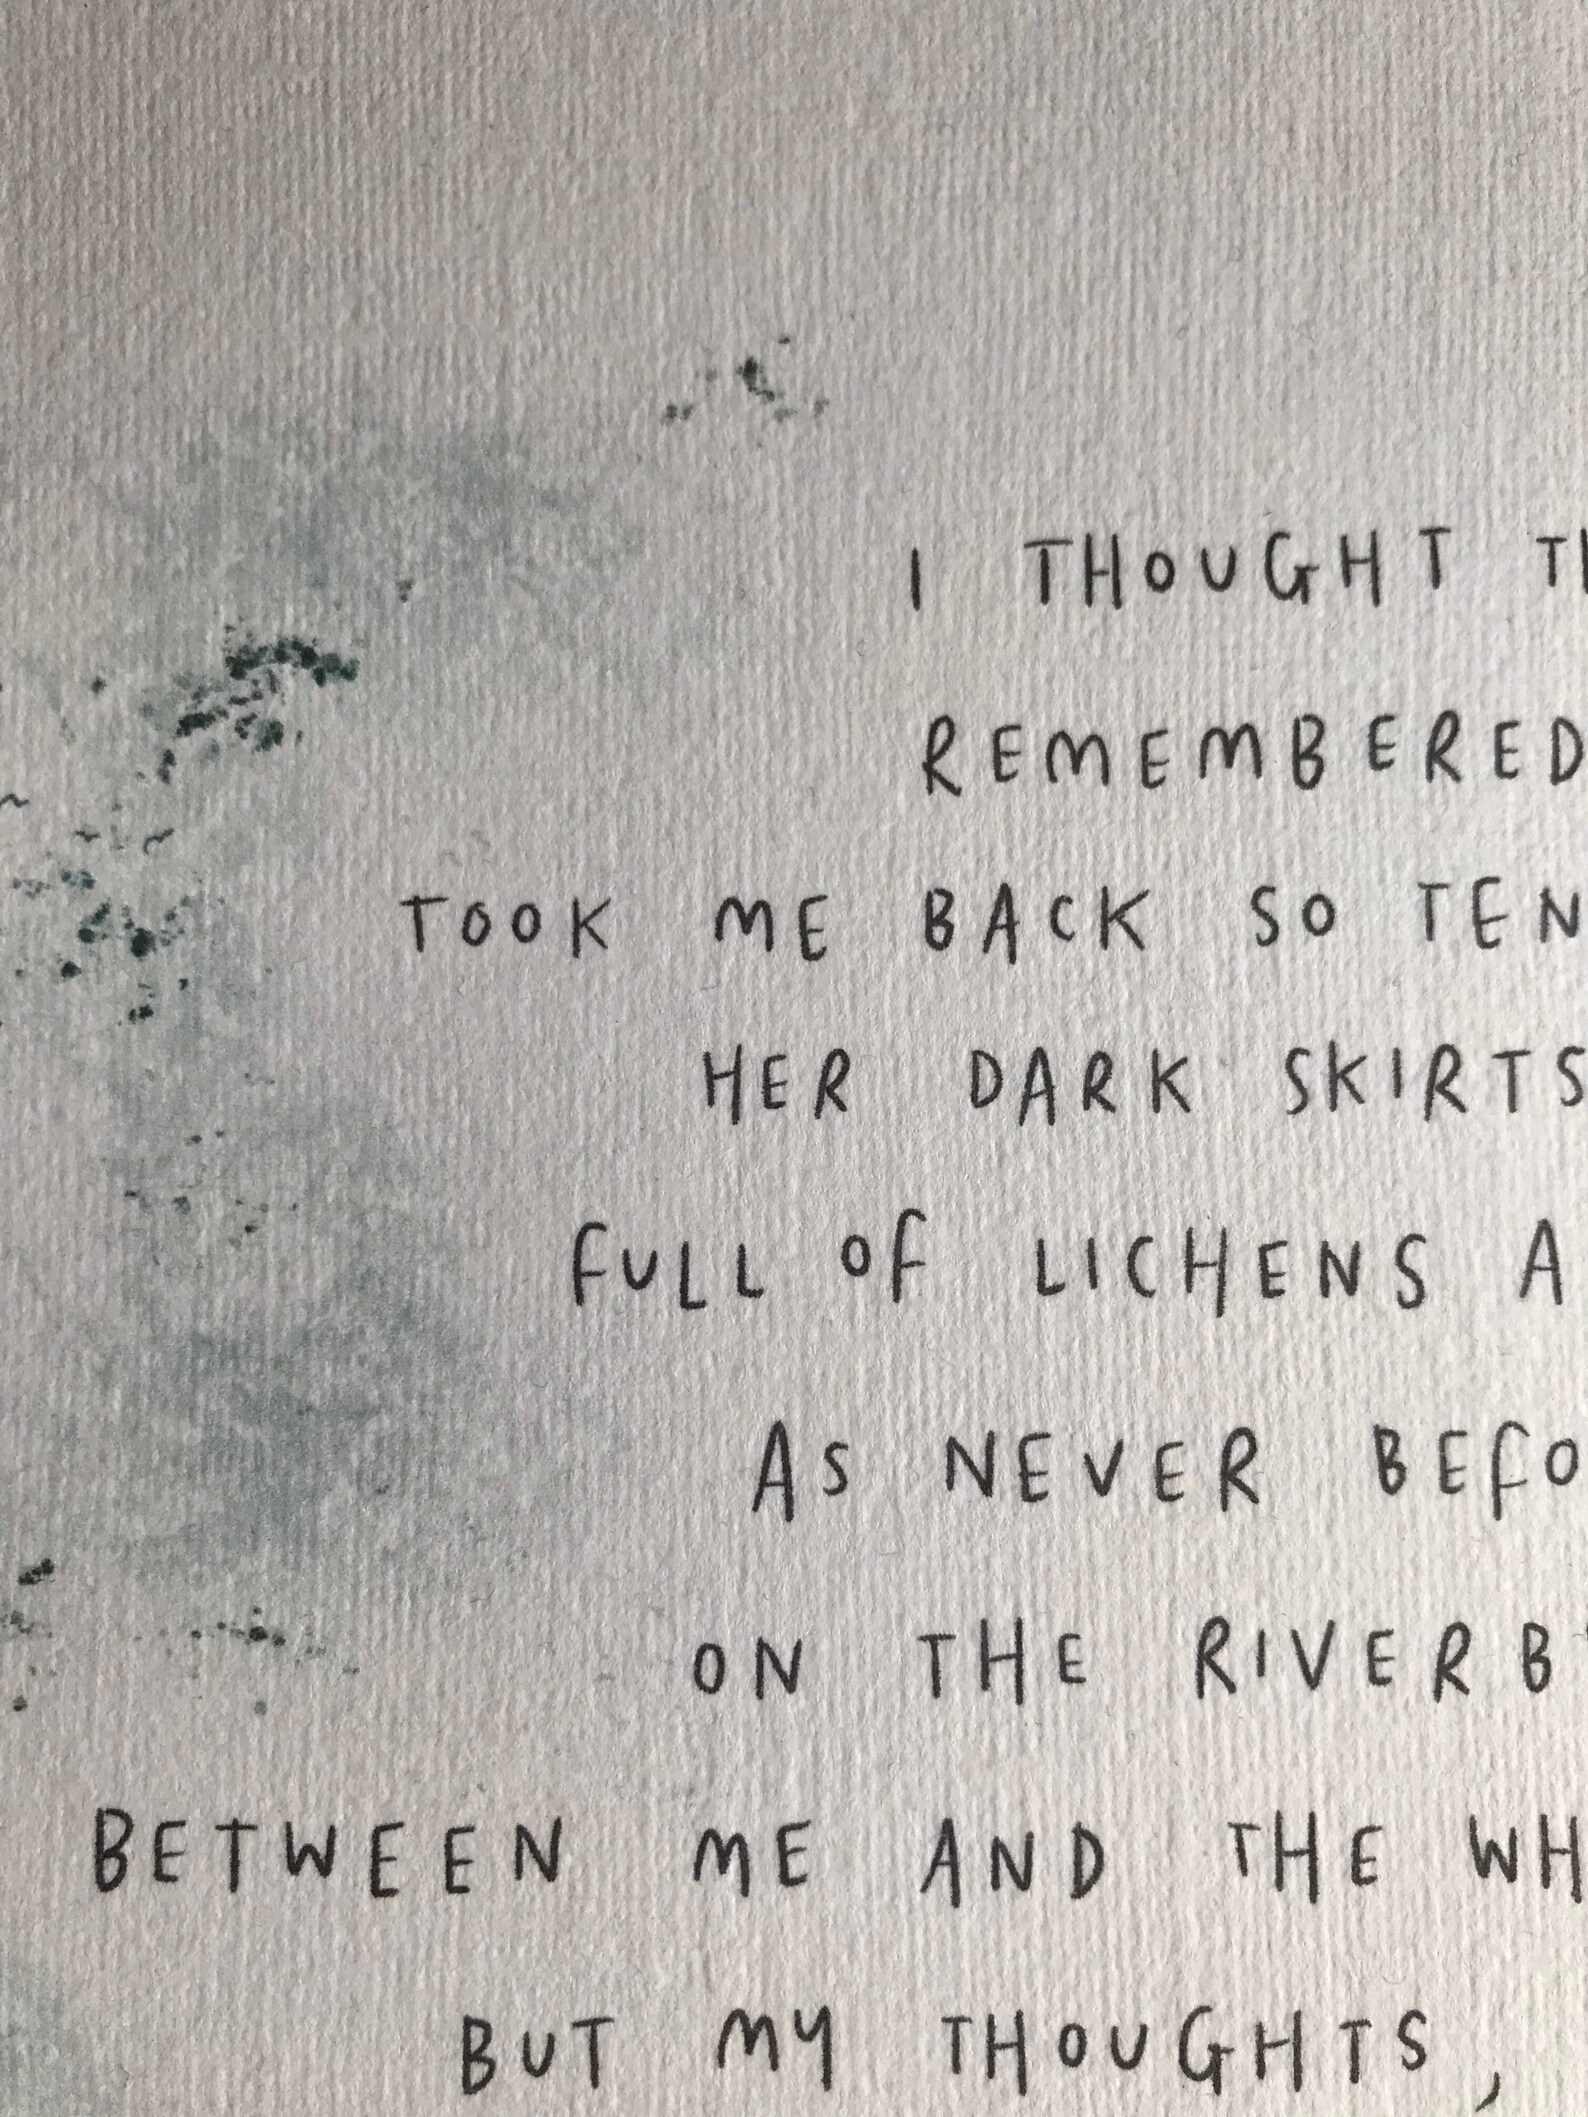 I THOUGHT
REMEMBERED
TOOK ME BACK SO TEN
HER DARK SKIRTS
FULL OF LICHENS A
AS NEVER BEFO
ON THE RIVERB
BETWEEN ME AND THE WH
BUT MY THOUGHTS,